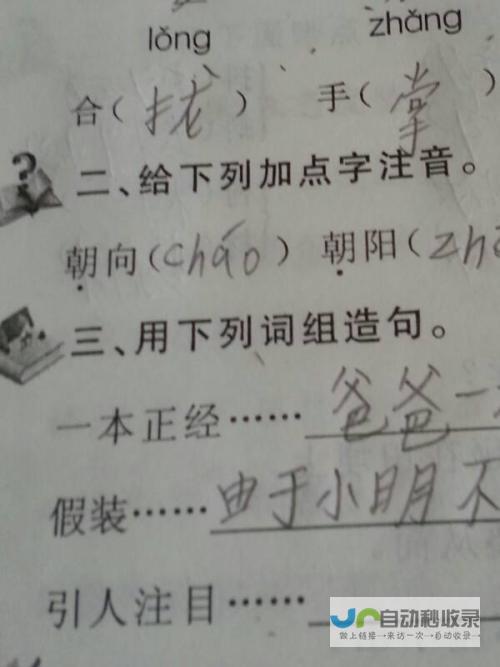 lǒng zhǎng
合(拢) 手(掌)
二、给下列加点字注音。
朝向(cháo) 朝阳(zh
三、用下列词组造句。
一本正经……爸爸一
假装……由于小明不
引人注目……
自动秒收录
做上链接→来访一次→自动收录